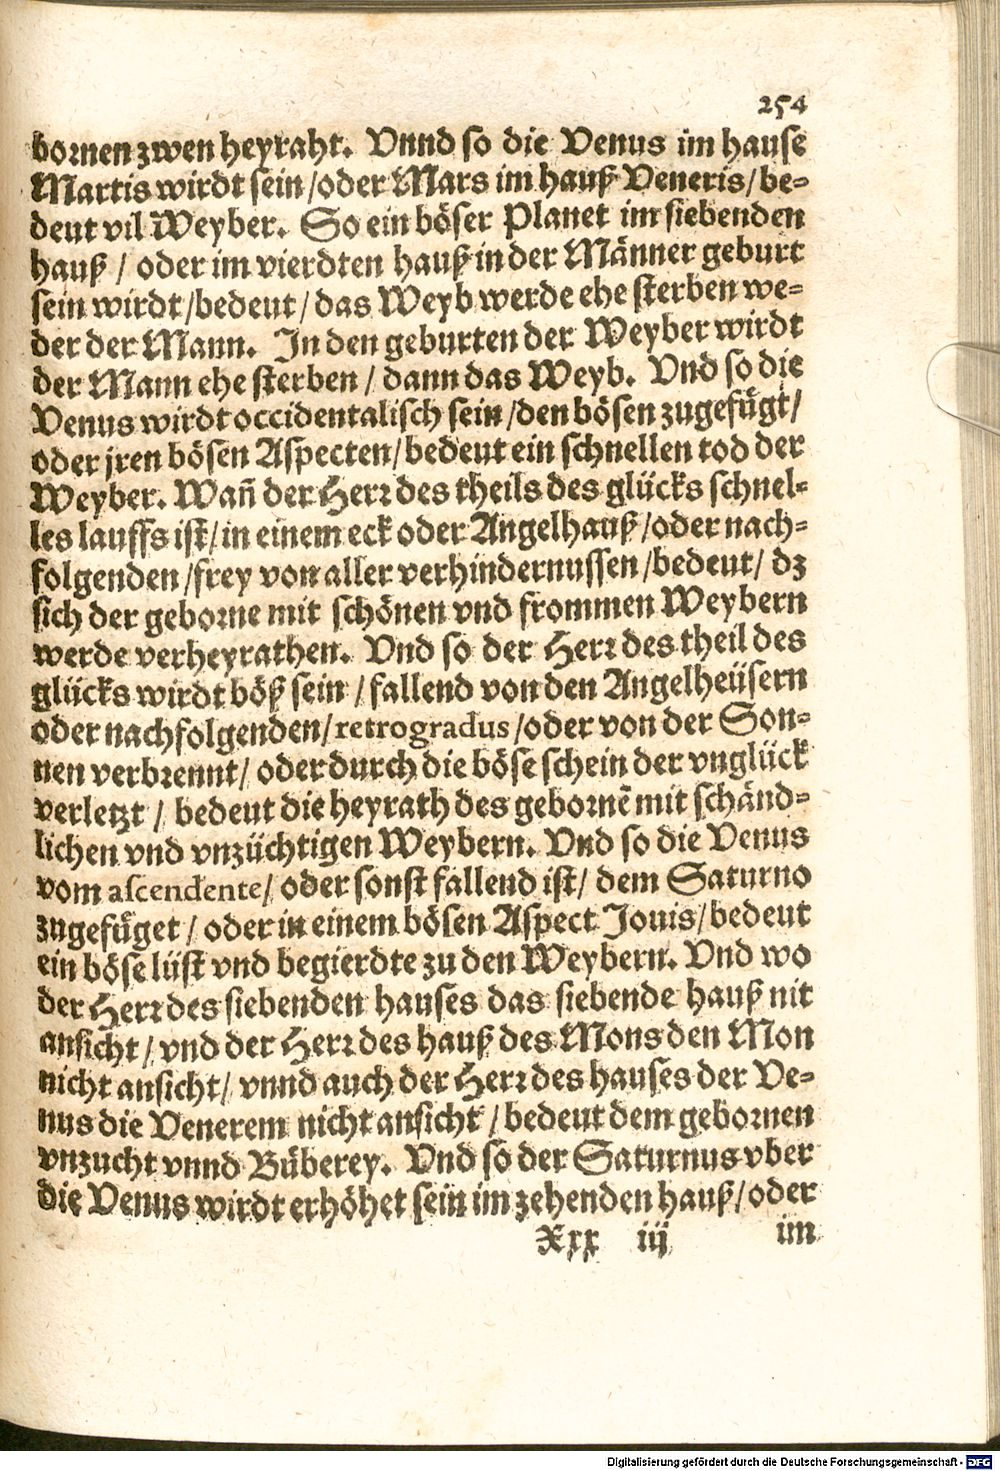 254
bornen zwen heyraht. Vnnd so die Venus im hause
Martis wirdt sein/oder Mars im hauß Veneris/be-
deut vil Weyber. So ein böser Planet im siebenden
hauß / oder im vierdten hauß in der Männer geburt
sein wirdt/bedeut/das Weyb werde ehe sterben we-
der der Mann. In den geburten der Weyber wirdt
der Mann ehe sterben / dann das Weyb. Vnd so die
Venus wirdt occidentalisch sein/den bösen zugefügt/
oder jren bösen Aspecten/bedeut ein schnellen tod der
Weyber. Wañ der Herr des theils des glücks schnel-
les lauffs ist/in einem eck oder Angelhauß/oder nach-
folgenden/frey von aller verhindernussen/bedeut/dz
sich der geborne mit schönen vnd frommen Weybern
werde verheyrathen. Vnd so der Herr des theil des
glücks wirdt böß sein /fallend von den Angelheüsern
oder nachfolgenden/retrogradus/oder von der Son-
nen verbrennt/ oder durch die böse schein der vnglück
verletzt / bedeut die heyrath des gebornẽ mit schänd-
lichen vnd vnzüchtigen Weybern. Vnd so die Venus
vom ascendente/ oder sonst fallend ist/ dem Saturno
zugefüget / oder in einem bösen Aspect Jouis/bedeut
ein böse lüst vnd begierdte zu den Weybern. Vnd wo
der Herr des siebenden hauses das siebende hauß nit
ansicht / vnd der Herr des hauß des Mons den Mon
nicht ansicht/ vnnd auch der Herr des hauses der Ve-
nus die Venerem nicht ansicht / bedeut dem gebornen
vnzucht vnnd Büberey. Vnd so der Saturnus vber
die Venus wirdt erhöhet sein im zehenden hauß/oder
Xxx iij im
Digitalisierung gefördert durch die Deutsche Forschungsgemeinschaft - DFG